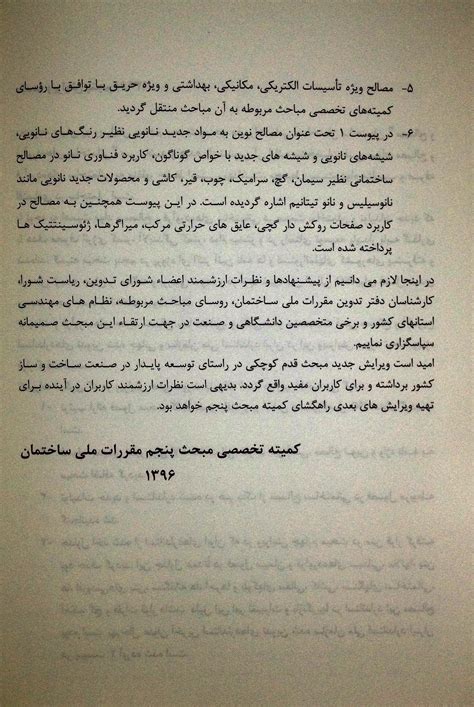 ۵- مصالح ویژه تأسیسات الکتریکی، مکانیکی، بهداشتی و ویژه حریق با توافق با رؤسای
کمیته‌های تخصصی مباحث مربوطه به آن مباحث منتقل گردید.
۶- در پیوست ۱ تحت عنوان مصالح نوین به مواد جدید نانویی نظیر رنگ‌های نانویی،
شیشه‌های نانویی و شیشه های جدید با خواص گوناگون، کاربرد فناوری نانو در مصالح
ساختمانی نظیر سیمان، گچ، سرامیک، چوب، قیر، کاشی و محصولات جدید نانویی مانند
نانوسیلیس و نانو تیتانیم اشاره گردیده است. در این پیوست همچنین به مصالح در
کاربرد صفحات روکش دار گچی، عایق های حرارتی مرکب، میراگرها، ژئوسینتتیک ها
پرداخته شده است.
در اینجا لازم می دانیم از پیشنهادها و نظرات ارزشمند اعضاء شورای تدوین، ریاست شورا،
کارشناسان دفتر تدوین مقررات ملی ساختمان، روسای مباحث مربوطه، نظام های مهندسی
استانهای کشور و برخی متخصصین دانشگاهی و صنعت در جهت ارتقاء این مبحث صمیمانه
سپاسگزاری نماییم.
امید است ویرایش جدید مبحث قدم کوچکی در راستای توسعه پایدار در صنعت ساخت و ساز
کشور برداشته و برای کاربران مفید واقع گردد. بدیهی است نظرات ارزشمند کاربران در آینده برای
تهیه ویرایش های بعدی راهگشای کمیته مبحث پنجم خواهد بود.
کمیته تخصصی مبحث پنجم مقررات ملی ساختمان
۱۳۹۶